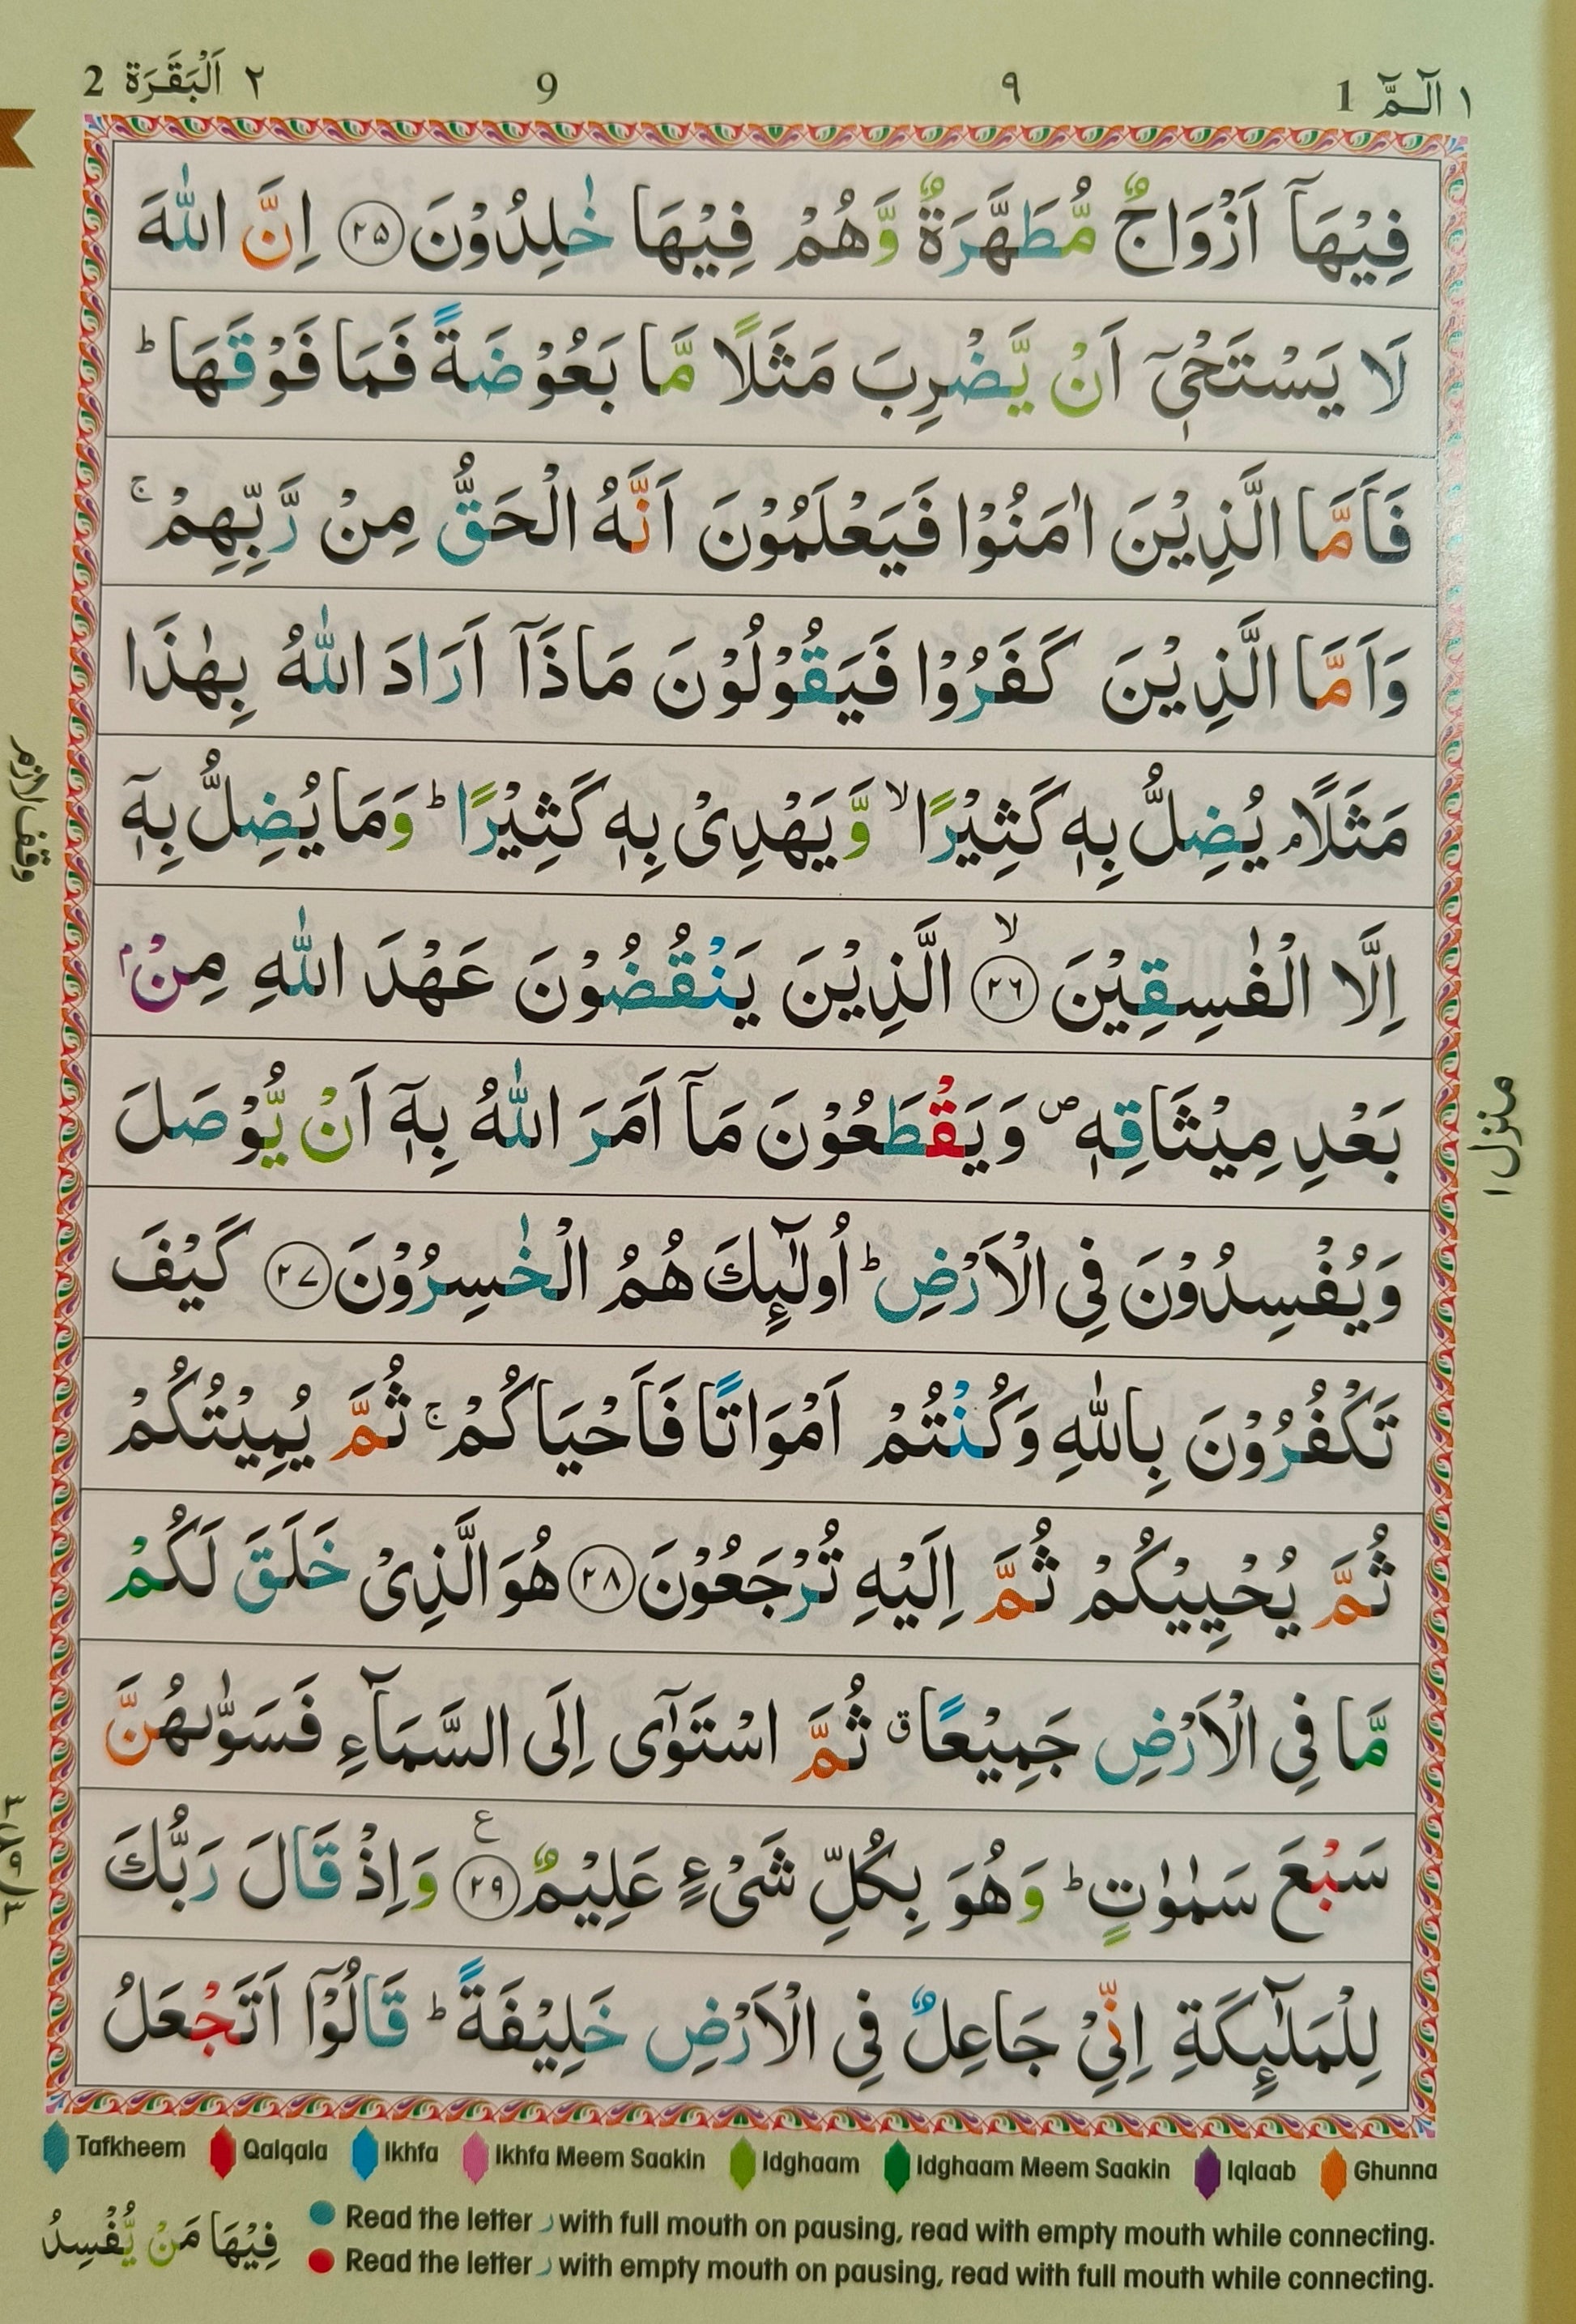 ١ الٓـمّٓ 1
٩
9
٢ اَلْبَقَرَة 2
فِيْهَآ اَزْوَاجٌ مُّطَهَّرَةٌ وَّهُمْ فِيْهَا خٰلِدُوْنَ ﴿٢٥﴾ اِنَّ اللّٰهَ
لَا يَسْتَحْيٖٓ اَنْ يَّضْرِبَ مَثَلًا مَّا بَعُوْضَةً فَمَا فَوْقَهَا ؕ
فَاَمَّا الَّذِيْنَ اٰمَنُوْا فَيَعْلَمُوْنَ اَنَّهُ الْحَقُّ مِنْ رَّبِّهِمْ ۚ
وَاَمَّا الَّذِيْنَ كَفَرُوْا فَيَقُوْلُوْنَ مَاذَآ اَرَادَ اللّٰهُ بِهٰذَا
مَثَلًا ۘ يُضِلُّ بِهٖ كَثِيْرًا ۙ وَّيَهْدِىْ بِهٖ كَثِيْرًا ؕ وَمَا يُضِلُّ بِهٖٓ
اِلَّا الْفٰسِقِيْنَ ۙ﴿٢٦﴾ الَّذِيْنَ يَنْقُضُوْنَ عَهْدَ اللّٰهِ مِنْۢ
بَعْدِ مِيْثَاقِهٖ ۪ وَيَقْطَعُوْنَ مَآ اَمَرَ اللّٰهُ بِهٖٓ اَنْ يُّوْصَلَ
وَيُفْسِدُوْنَ فِى الْاَرْضِ ؕ اُولٰٓئِكَ هُمُ الْخٰسِرُوْنَ ﴿٢٧﴾ كَيْفَ
تَكْفُرُوْنَ بِاللّٰهِ وَكُنْتُمْ اَمْوَاتًا فَاَحْيَاكُمْ ۚ ثُمَّ يُمِيْتُكُمْ
ثُمَّ يُحْيِيْكُمْ ثُمَّ اِلَيْهِ تُرْجَعُوْنَ ﴿٢٨﴾ هُوَ الَّذِىْ خَلَقَ لَكُمْ
مَّا فِى الْاَرْضِ جَمِيْعًا ق ثُمَّ اسْتَوٰٓى اِلَى السَّمَآءِ فَسَوّٰىهُنَّ
سَبْعَ سَمٰوٰتٍ ؕ وَهُوَ بِكُلِّ شَىْءٍ عَلِيْمٌ ﴿٢٩﴾ ع وَاِذْ قَالَ رَبُّكَ
لِلْمَلٰٓئِكَةِ اِنِّىْ جَاعِلٌ فِى الْاَرْضِ خَلِيْفَةً ؕ قَالُوْٓا اَتَجْعَلُ
وقف لازم
منزل ١
Tafkheem Qalqala Ikhfa Ikhfa Meem Saakin Idghaam Idghaam Meem Saakin Iqlaab Ghunna
Read the letter ر with full mouth on pausing, read with empty mouth while connecting.
Read the letter ر with empty mouth on pausing, read with full mouth while connecting.
فِيْهَا مَنْ يُّفْسِدُ